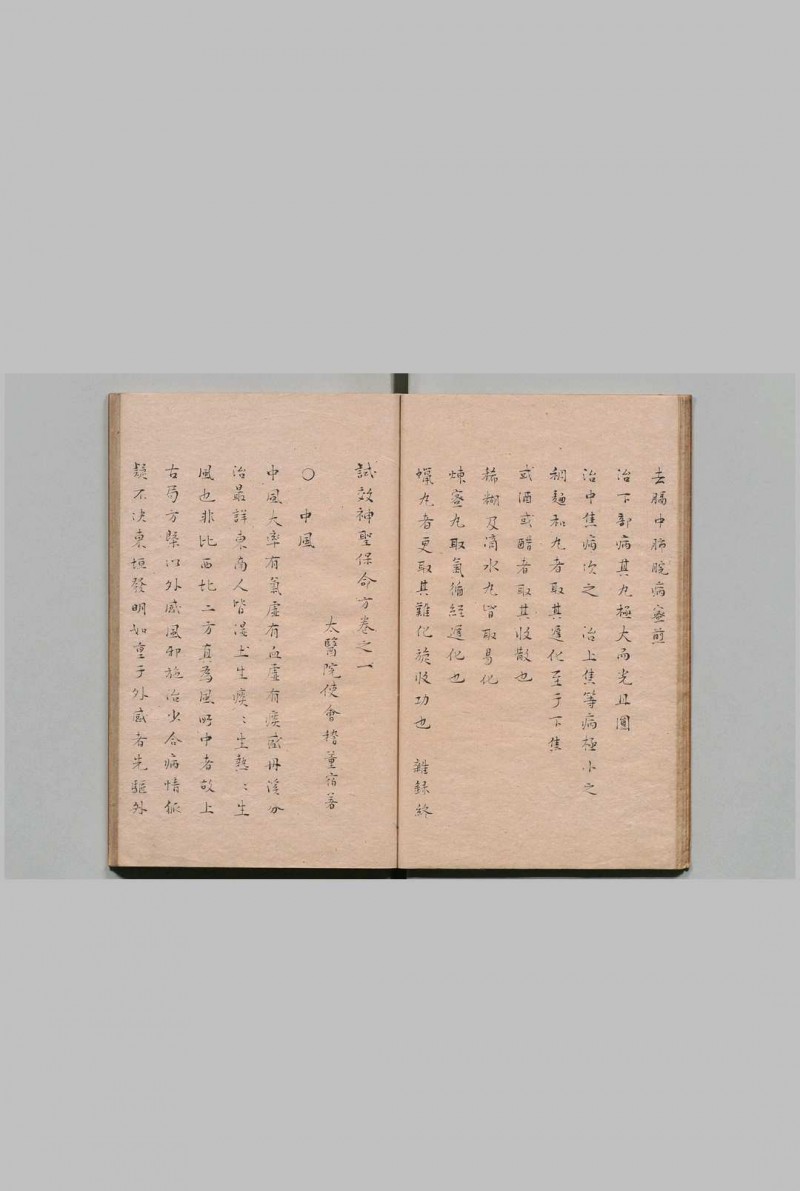 去腸中肺脘病蜜煎
治下部病其丸極大而光且圓
治中焦病次之　治上焦等病極小之
稠麺和丸者取其遲化至于下焦
或酒或醋者取其收散也
稀糊及滴水丸皆取易化
煉蜜丸取氣循經遲化也
蠟丸者更取其難化旋收功也　雜録終
試效神聖保命方卷之一
太醫院使會稽董宿著
○　中風
中風大率有氣虛有血虛有痰盛丹溪分
治最詳東南人皆湿土生痰〻生熱〻生
風也非比西北二方真為風所中者故上
古局方槩以外感風邪施治少合病情狐
疑不决東垣發明如重于外感者先驅外